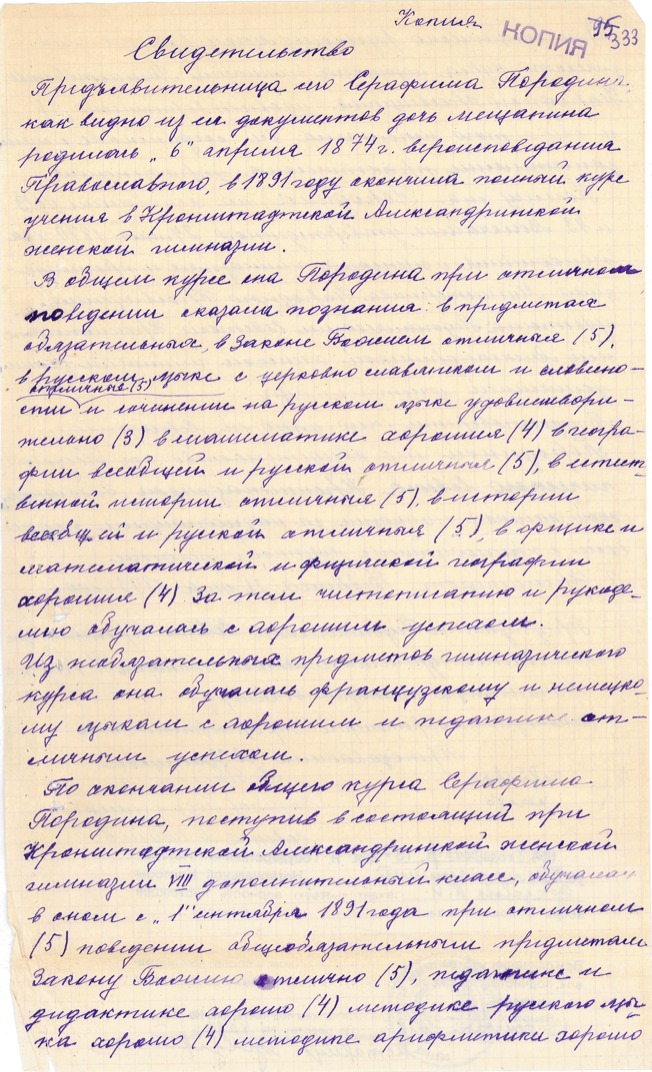 Копия
КОПИЯ
95
333
Свидетельство
Предъявительница сего Серафима Породина,
как видно из ея документов дочь мещанина
родилась „6" апреля 1874 г. вероисповедания
Православного, в 1891 году окончила полный курс
учения в Кронштадтской Александринской
женской гимназии.
В общем курсе она Породина при отличном
поведении оказала познания: в предметах
обязательных, в Законе Божием отличныя (5),
в русском языке с церковно славянским и словесно-
отличные (5)
сти и сочинении на русском языке удовлетвори-
тельно (3) в математике хорошия (4) в геогра-
фии всеобщей и русской отличныя (5), в естест-
венной истории отличныя (5), в истории
всеобщей и русской отличныя (5), в физике и
математической и физической географии
хорошия (4). За тем чистописанию и рукоде-
лию обучалась с хорошим успехом.
Из необязательных предметов гимназического
курса она обучалась французскому и немецко-
му языкам с хорошим и педагогике от-
личным успехом.
По окончании общего курса Серафима
Породина, поступив в состоящий при
Кронштадтской Александринской женской
гимназии VIII дополнительный класс, обучалась
в оном с „1" сентября 1891 года при отличном
(5) поведении общеобязательным предметам
Закону Божию отлично (5), педагогике и
дидактике хорошо (4) методике русского язы-
ка хорошо (4) методике арифметики хорошо